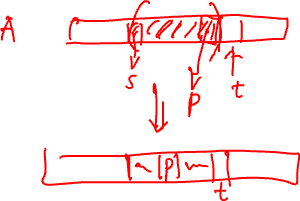 A
s p t
p
t